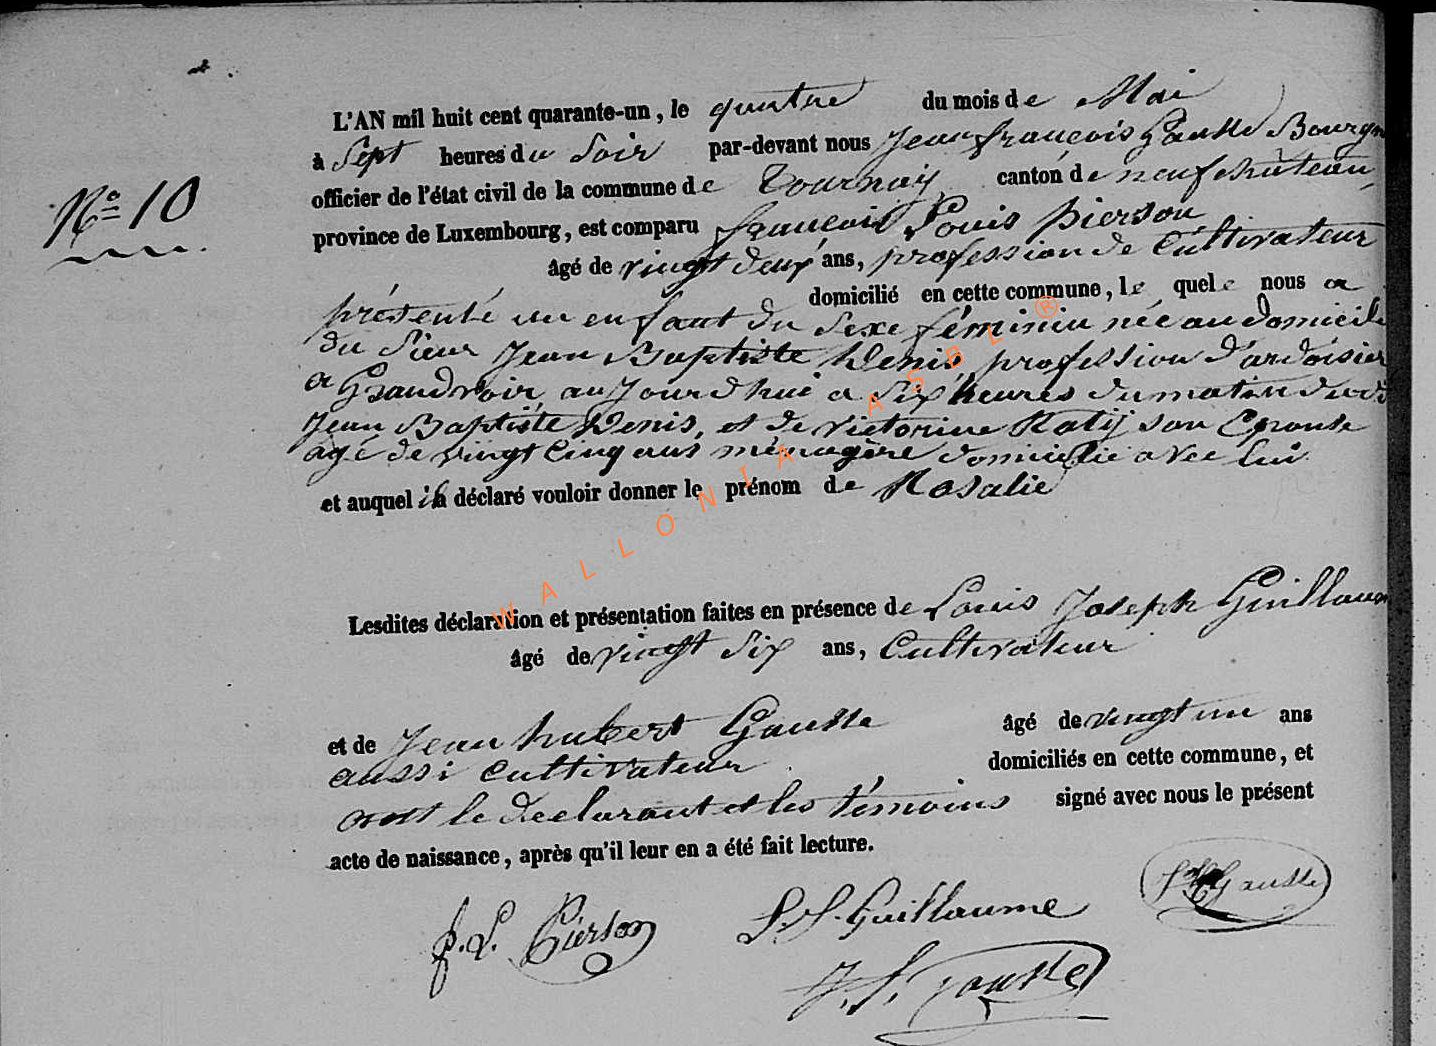 L'AN mil huit cent quarante-un, le quatre du mois de Mai
à Sept heures du Soir par-devant nous Jean françois Gausse Bourgm
officier de l'état civil de la commune de Tournay canton de neufchâteau,
province de Luxembourg, est comparu françois Louis pierson
N° 10
âgé de vingt deux ans, profession de Cultivateur
domicilié en cette commune, le quel nous a
présenté un enfant du Sexe féminin née au domicile
du Sieur Jean Baptiste Denis, profession d'ardoisier
a Grandvoir, aujourd'hui a Six heures du matin dudi
Jean Baptiste Denis, et de victorine Katy son Epouse
agé de vingt Cinq ans ménagère domicilie avec lui
et auquel il a déclaré vouloir donner le prénom de Rosalie
WALLONIA ASBL ®
Lesdites déclaration et présentation faites en présence de Louis Joseph Guillaum
âgé de vingt Six ans, Cultivateur
et de Jean hubert Gausse âgé de vingt un ans
aussi Cultivateur domiciliés en cette commune, et
ont le declarant et les témoins signé avec nous le présent
acte de naissance, après qu'il leur en a été fait lecture.
f. L. Pierson L. J. Guillaume Gausse
J. f. gausse